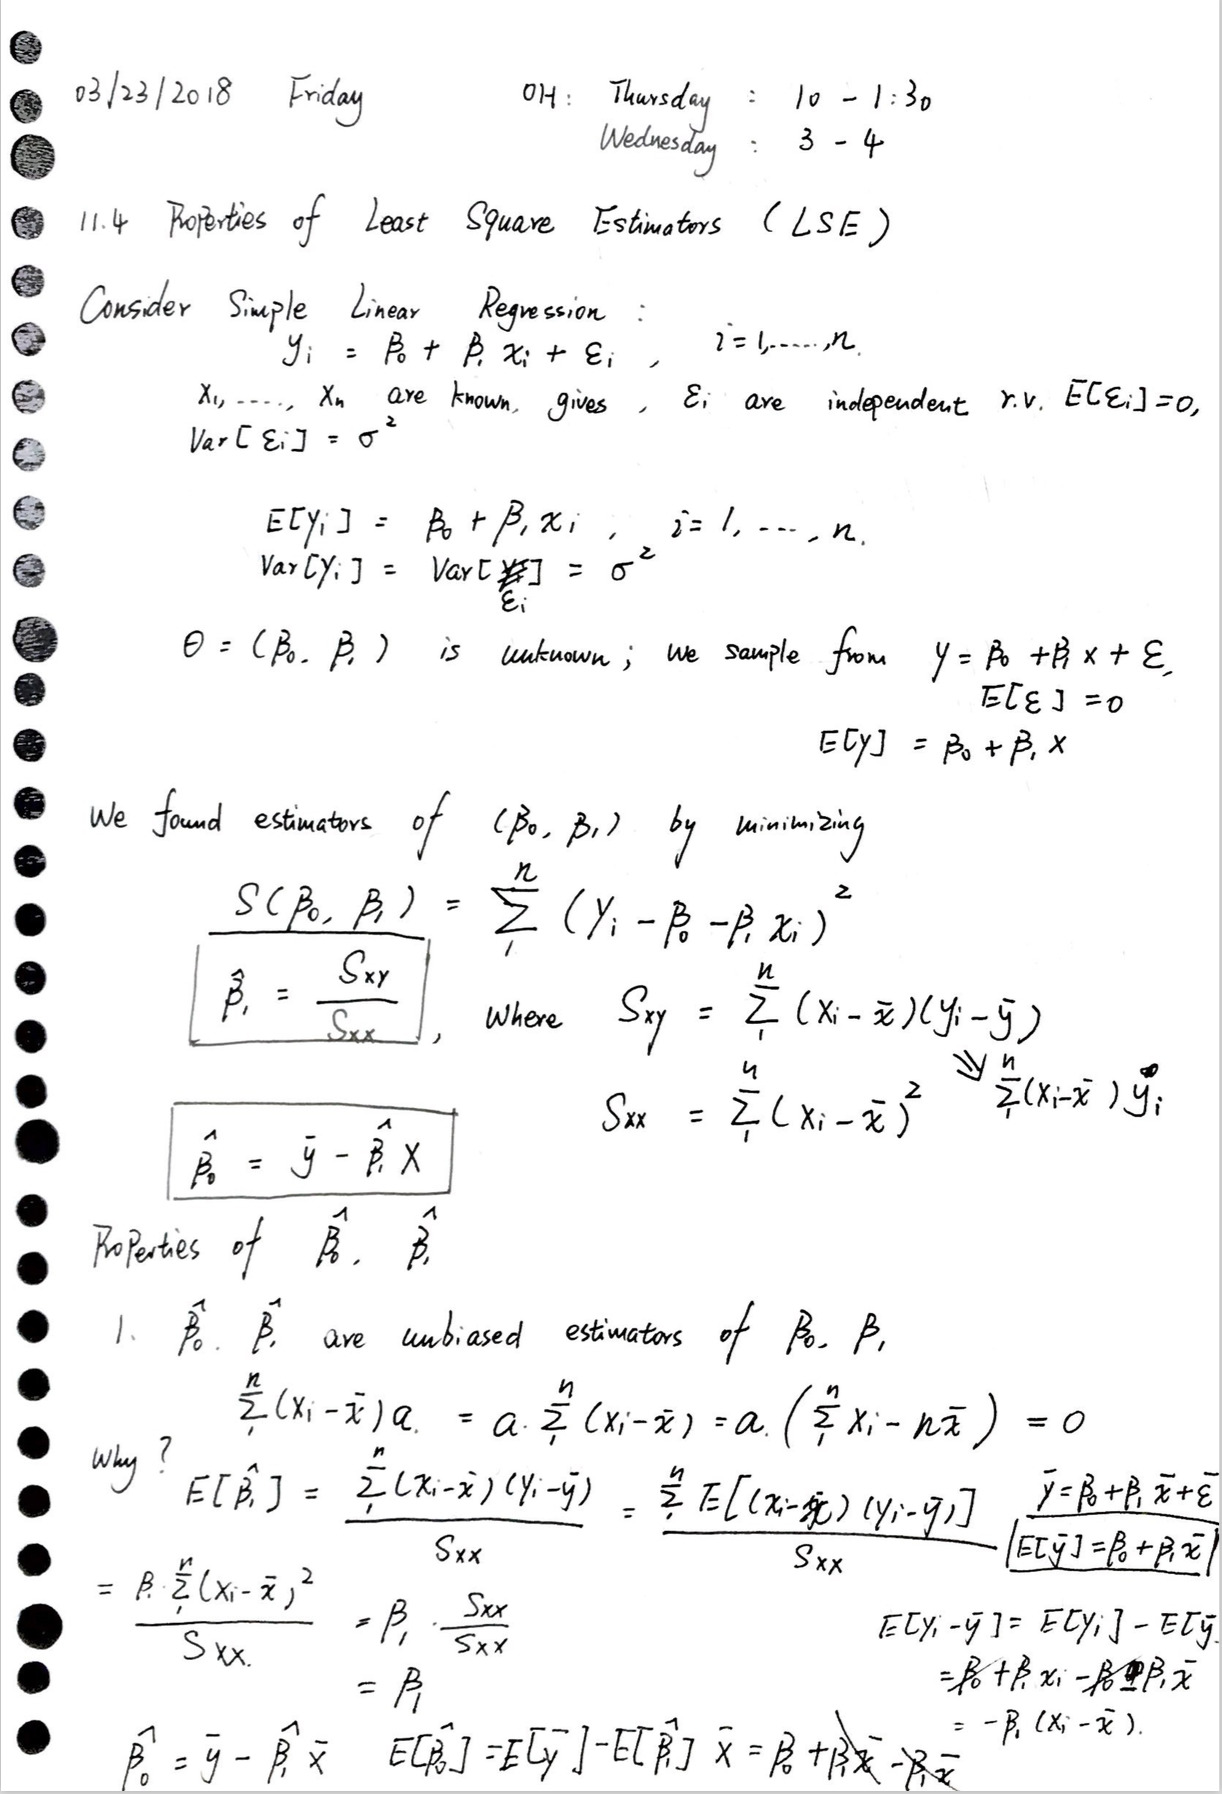 03/23/2018 Friday OH: Thursday : 10 - 1:30
Wednesday : 3 - 4
11.4 Properties of Least Square Estimators (LSE)
Consider Simple Linear Regression :
yᵢ = β₀ + β₁ xᵢ + εᵢ , i = 1,....., n.
x₁, ...., xₙ are known, gives , εᵢ are independent r.v. E[εᵢ] = 0,
Var[εᵢ] = σ²
E[yᵢ] = β₀ + β₁ xᵢ , i = 1, ---, n.
Var[yᵢ] = Var[εᵢ] = σ²
θ = (β₀, β₁) is unknown; we sample from y = β₀ + β₁ x + ε,
E[ε] = 0
E[y] = β₀ + β₁ x
We found estimators of (β₀, β₁) by minimizing
S(β₀, β₁) = Σ₁ⁿ (yᵢ - β₀ - β₁ xᵢ)²
β̂₁ = Sxy / Sxx , where Sxy = Σ₁ⁿ (xᵢ - x̄)(yᵢ - ȳ)
⇒ Σ₁ⁿ (xᵢ - x̄) yᵢ
Sxx = Σ₁ⁿ (xᵢ - x̄)²
β̂₀ = ȳ - β̂₁ x
Properties of β̂₀, β̂₁
1. β̂₀, β̂₁ are unbiased estimators of β₀, β₁
Σ₁ⁿ (xᵢ - x̄) a. = a. Σ₁ⁿ (xᵢ - x̄) = a. (Σ₁ⁿ xᵢ - n x̄) = 0
Why?
E[β̂₁] = Σ₁ⁿ (xᵢ - x̄)(yᵢ - ȳ) / Sxx = Σ₁ⁿ E[(xᵢ - x̄)(yᵢ - ȳ)] / Sxx
ȳ = β₀ + β₁ x̄ + ε̄
E[ȳ] = β₀ + β₁ x̄
= β₁ Σ₁ⁿ (xᵢ - x̄)² / Sxx. = β₁ · Sxx / Sxx
= β₁
E[yᵢ - ȳ] = E[yᵢ] - E[ȳ
= β₀ + β₁ xᵢ - β₀ - β₁ x̄
= - β₁ (xᵢ - x̄).
β̂₀ = ȳ - β̂₁ x̄ E[β̂₀] = E[ȳ] - E[β̂₁] x̄ = β₀ + β₁ x̄ - β₁ x̄